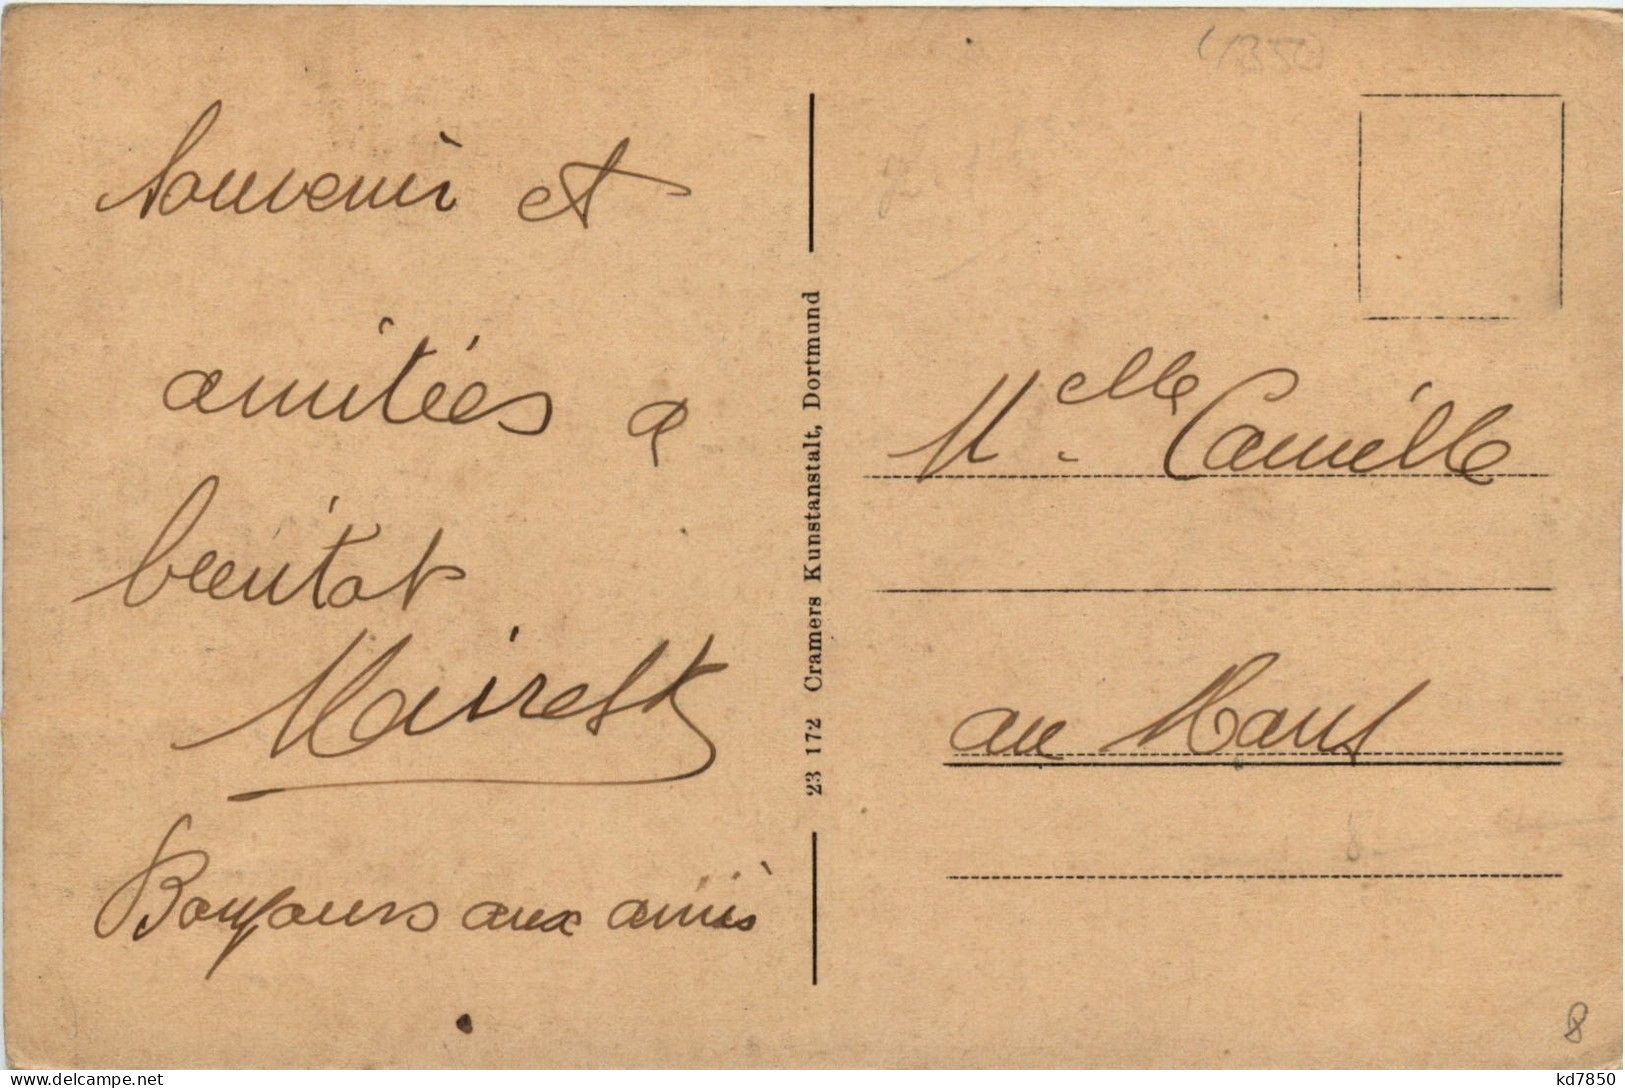 Souvenir et
amitées a
bientot
Bonjours aux amis
23 172 Cramers Kunstanstalt, Dortmund
Melle Camille
au Mans
8
www.delcampe.net
kd7850